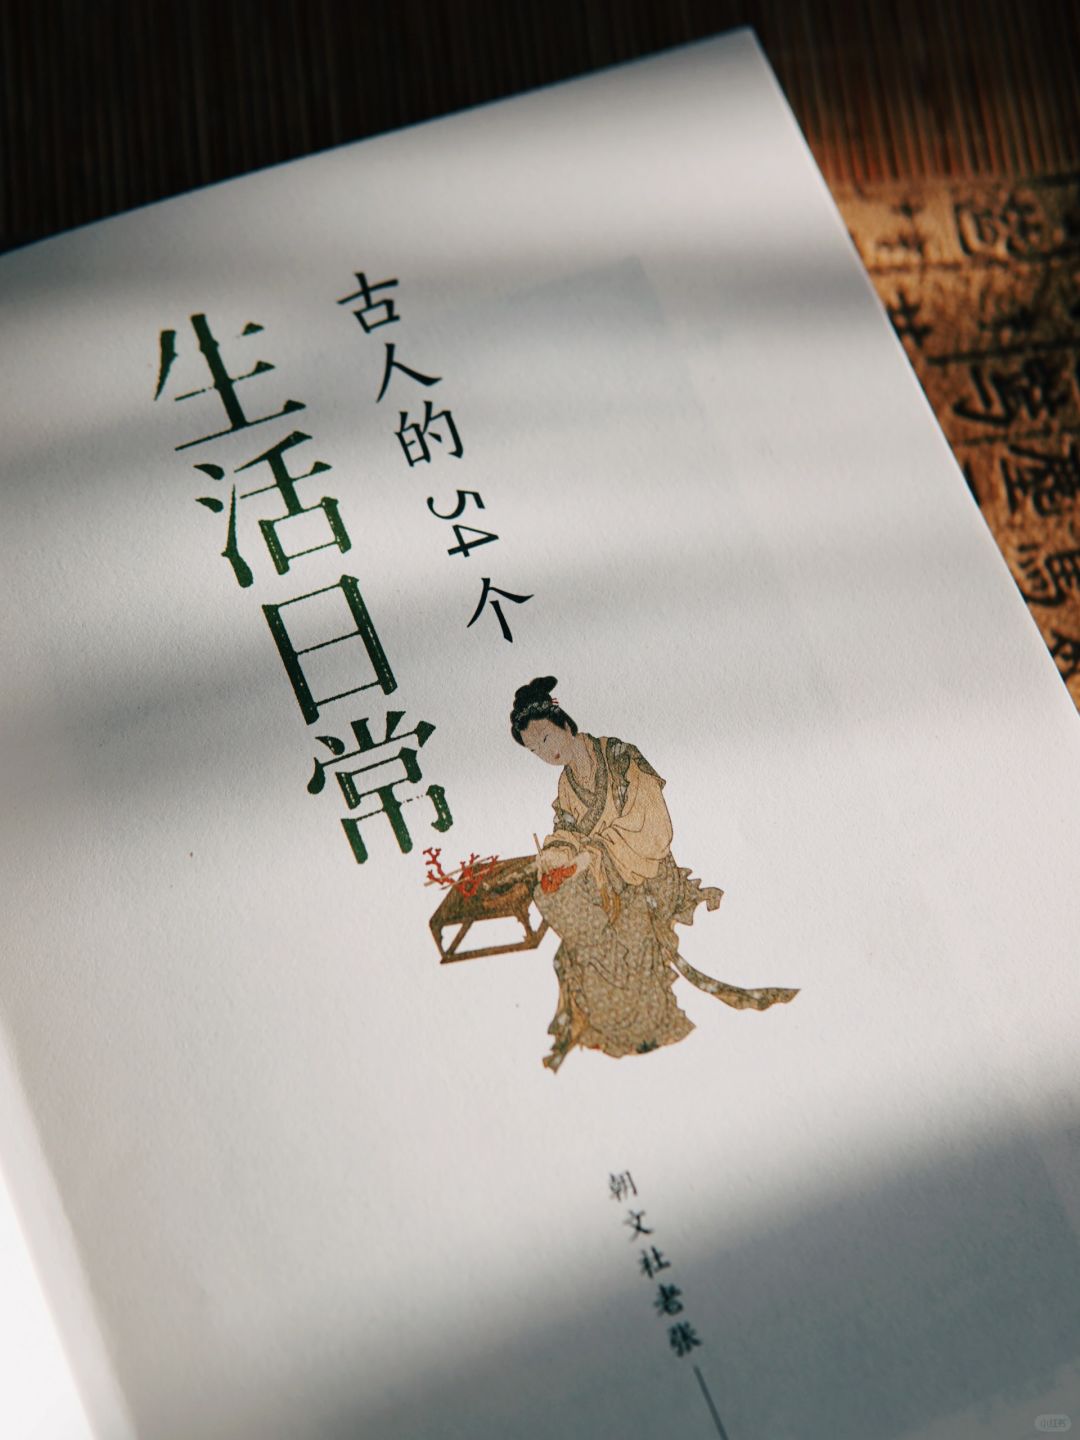 古人的54个
生活日常
朝文社老张
小红书